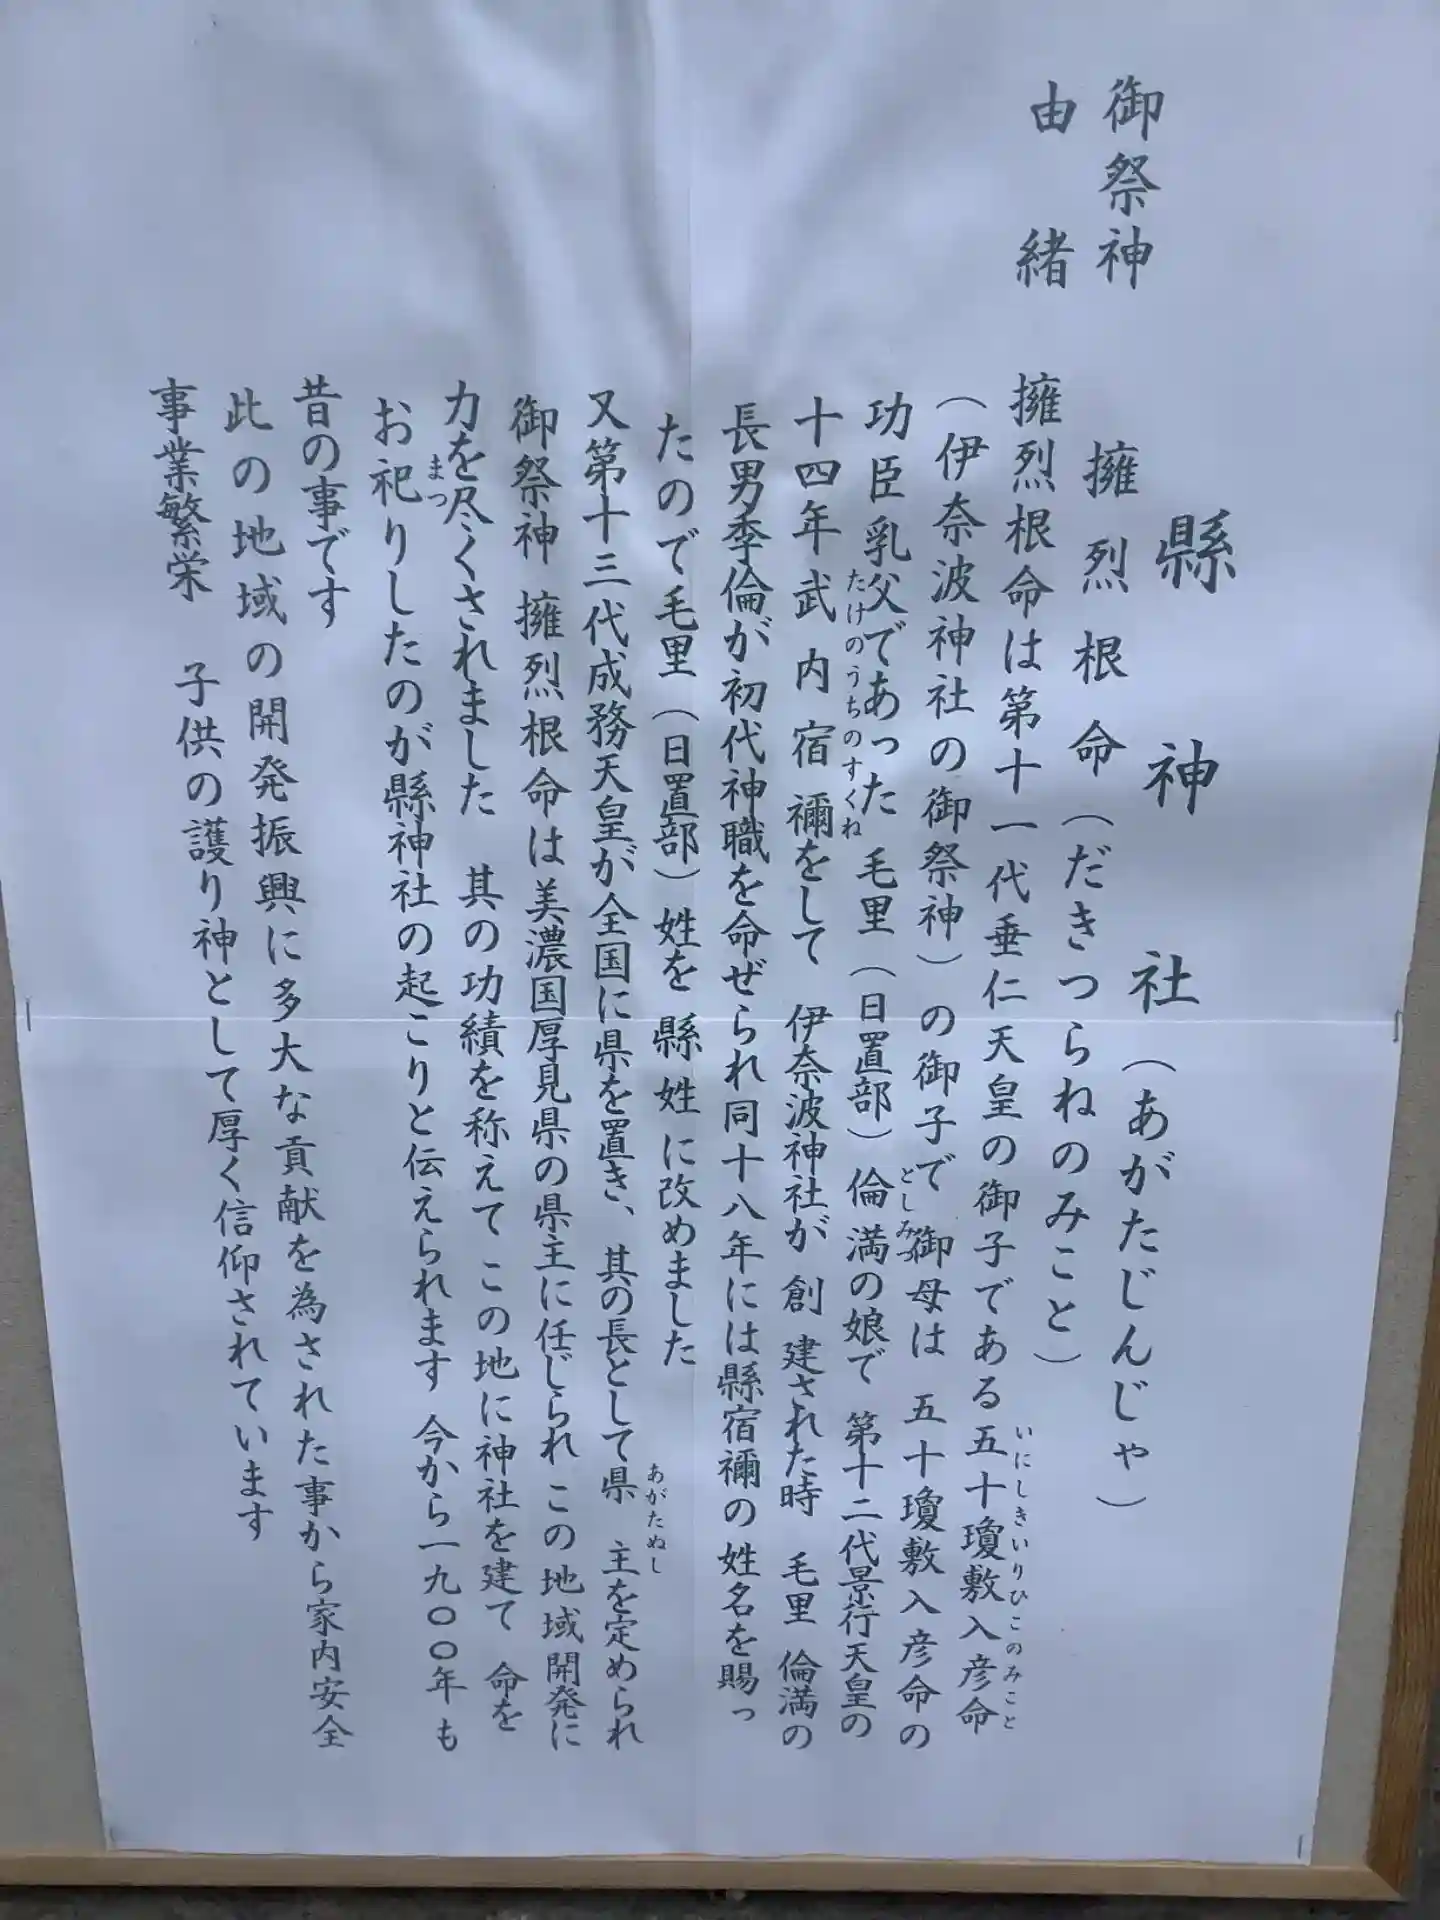 縣神社（あがたじんじゃ）
御祭神 擁烈根命（だきつらねのみこと）
由緒 擁烈根命は第十一代垂仁天皇の御子である五十瓊敷入彦命
いにしきいりひこのみこと
（伊奈波神社の御祭神）の御子で 御母は 五十瓊敷入彦命の
功臣乳父であった 毛里（日置部）倫満の娘で 第十二代景行天皇の
としみつ
十四年武内宿禰をして 伊奈波神社が 創建された時 毛里 倫満の
たけのうちのすくね
長男季倫が初代神職を命ぜられ同十八年には縣宿禰の姓名を賜っ
たので毛里（日置部）姓を 縣姓 に改めました
又第十三代成務天皇が全国に県を置き、其の長として県 主を定められ
あがたぬし
御祭神 擁烈根命は美濃国厚見県の県主に任じられ この地域開発に
力を尽くされました 其の功績を称えて この地に神社を建て 命を
お祀りしたのが縣神社の起こりと伝えられます 今から一九〇〇年も
まつ
昔の事です
此の地域の開発振興に多大な貢献を為された事から家内安全
事業繁栄 子供の護り神として厚く信仰されています